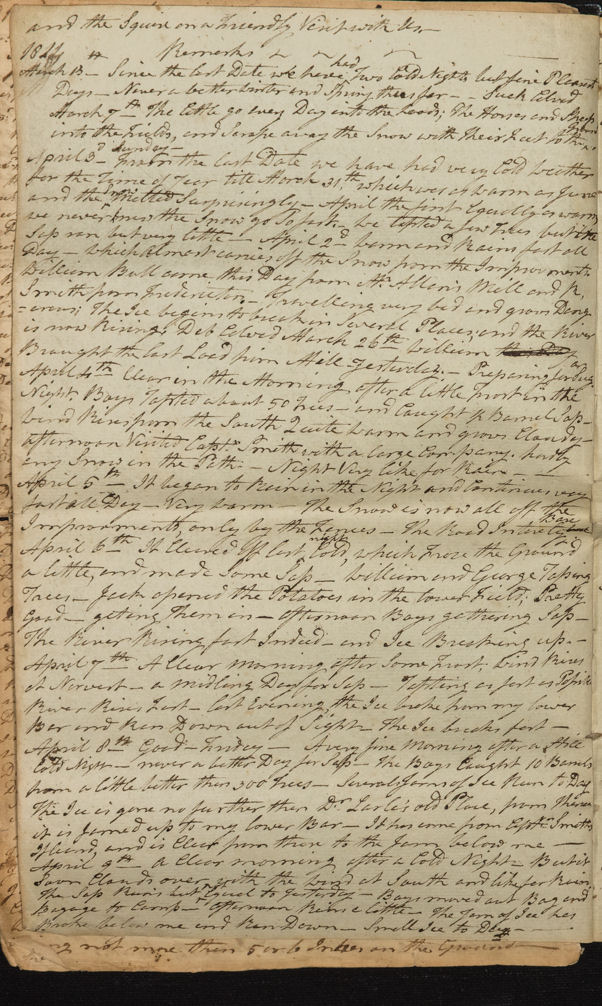 and the Squire on a Friendly Visit with Us
1824 Remarks
March 13th Since the last Date we have had Two Cold Nights but fine Pleasant
Days - Never a better winter and Spring thus far - Such Calved
March 7th The Cattle go every Day into the woods; The Horses and Sheep
into the Fields, and Scrape away the Snow with Their Feet to the Ground
April 3d Sunday - From the last Date we have had very Cold weather
for the Time of Year till March 31th which was as warm as June
and the Snow Melted Surprisingly - April the first Equally as warm
we never knew the Snow go So fast. We tapted a few Trees but the
Sap ran but very little - April 2d warm and Rains fast all
Day - which almost carries off the Snow from the Improvements
William Bull came this Day from Mr Allen's Mill and R,
Smith from Fredericton - Travelling very bad and grows Dang-
-erous; The Ice begins to break in Several Places, and the River
is now Rising; Deb Calved March 26th William
Brought the last Load from Mill Yesterday. - Preparing for Sug
April 4th Clear in the Morning after a little frost in the
Night Boys Tapted about 50 Trees - and Caught ½ Barrel Sap -
wind Rises from the South Quite warm and grows Cloudy -
afternoon Visited Capt Smith with a large Company. hardly
any Snow in the Path - Night Very like for Rain -
April 5th It began to Rain in the Night and Continues very
fast all Day - Very warm - The Snow is now all off the
Improvements, only by the Fences - The Road Intirely Bare
April 6th It Cleared off last night Cold, which froze the Ground
a little, and made Some Sap - William and George Taping
Trees - Jack opened the Potatoes in the lower Field; Pretty
Good - geting Them in - afternoon Boys gathering Sap -
The River Rising fast Indeed - and Ice Breaking up -
April 7th A Clear morning after Some Frost, wind Rises
at Norwest - a midling Day for Sap - Tapting as fast as Possible
River Rises Fast - last Evening the Ice broke from my lower
Bar and Ran Down out of Sight - The Ice breaks fast -
April 8th Good Friday - A very fine Morning after a Still
Cold Night - never a better Day for Sap - The Boys Caught 10 Barrels
from a little better then 300 Trees - Several Jams of Ice Run to Day
The Ice is gone no further then Dr Earle's old Place, from Thence
it is Jamed up to my lower Bar - It has come from Capt Smith's
Island, and is Clear from there to the Jam below me -
April 9th A Clear morning after a Cold Night - But it
Soon Clouds over with the wind at South and like for Rain,
The Sap Runs but Equal to Yesterday - Boys moved out Bag and
Bagage to Camp - afternoon Rains a little - The Jam of Ice has
Broke below me and Ran Down - Small Ice to Day -
not more then 5 or 6 Inches on the Ground